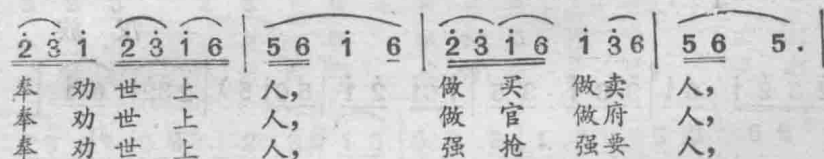 2 3 1 2 3 1 6 | 5 6 1 6 | 2 3 1 6 1 3 6 | 5 6 5 . |
奉 劝 世 上 人， 做 买 做 卖 人，
奉 劝 世 上 人， 做 官 做 府 人，
奉 劝 世 上 人， 强 抢 强 要 人，